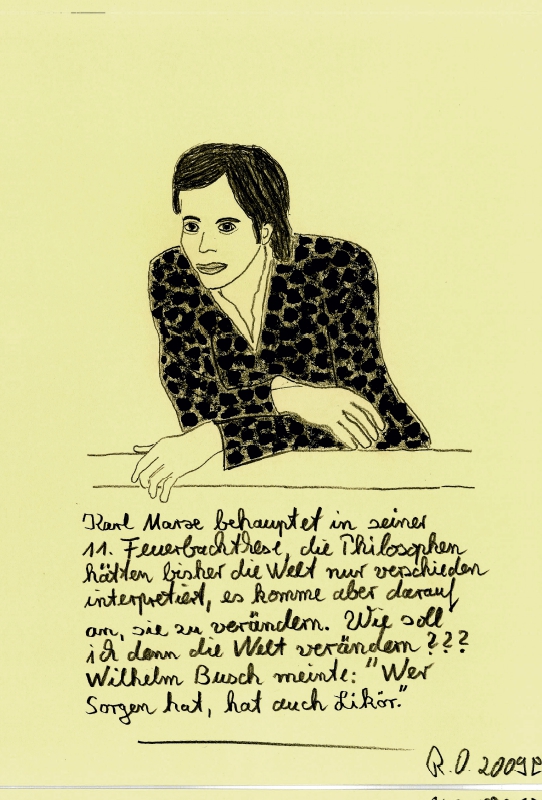 Karl Marx behauptet in seiner
11. Feuerbachthese, die Philosophen
hätten bisher die Welt nur verschieden
interpretiert, es komme aber darauf
an, sie zu verändern. Wie soll
ich denn die Welt verändern ???
Wilhelm Busch meinte: "Wer
Sorgen hat, hat auch Likör."
R.O. 2009